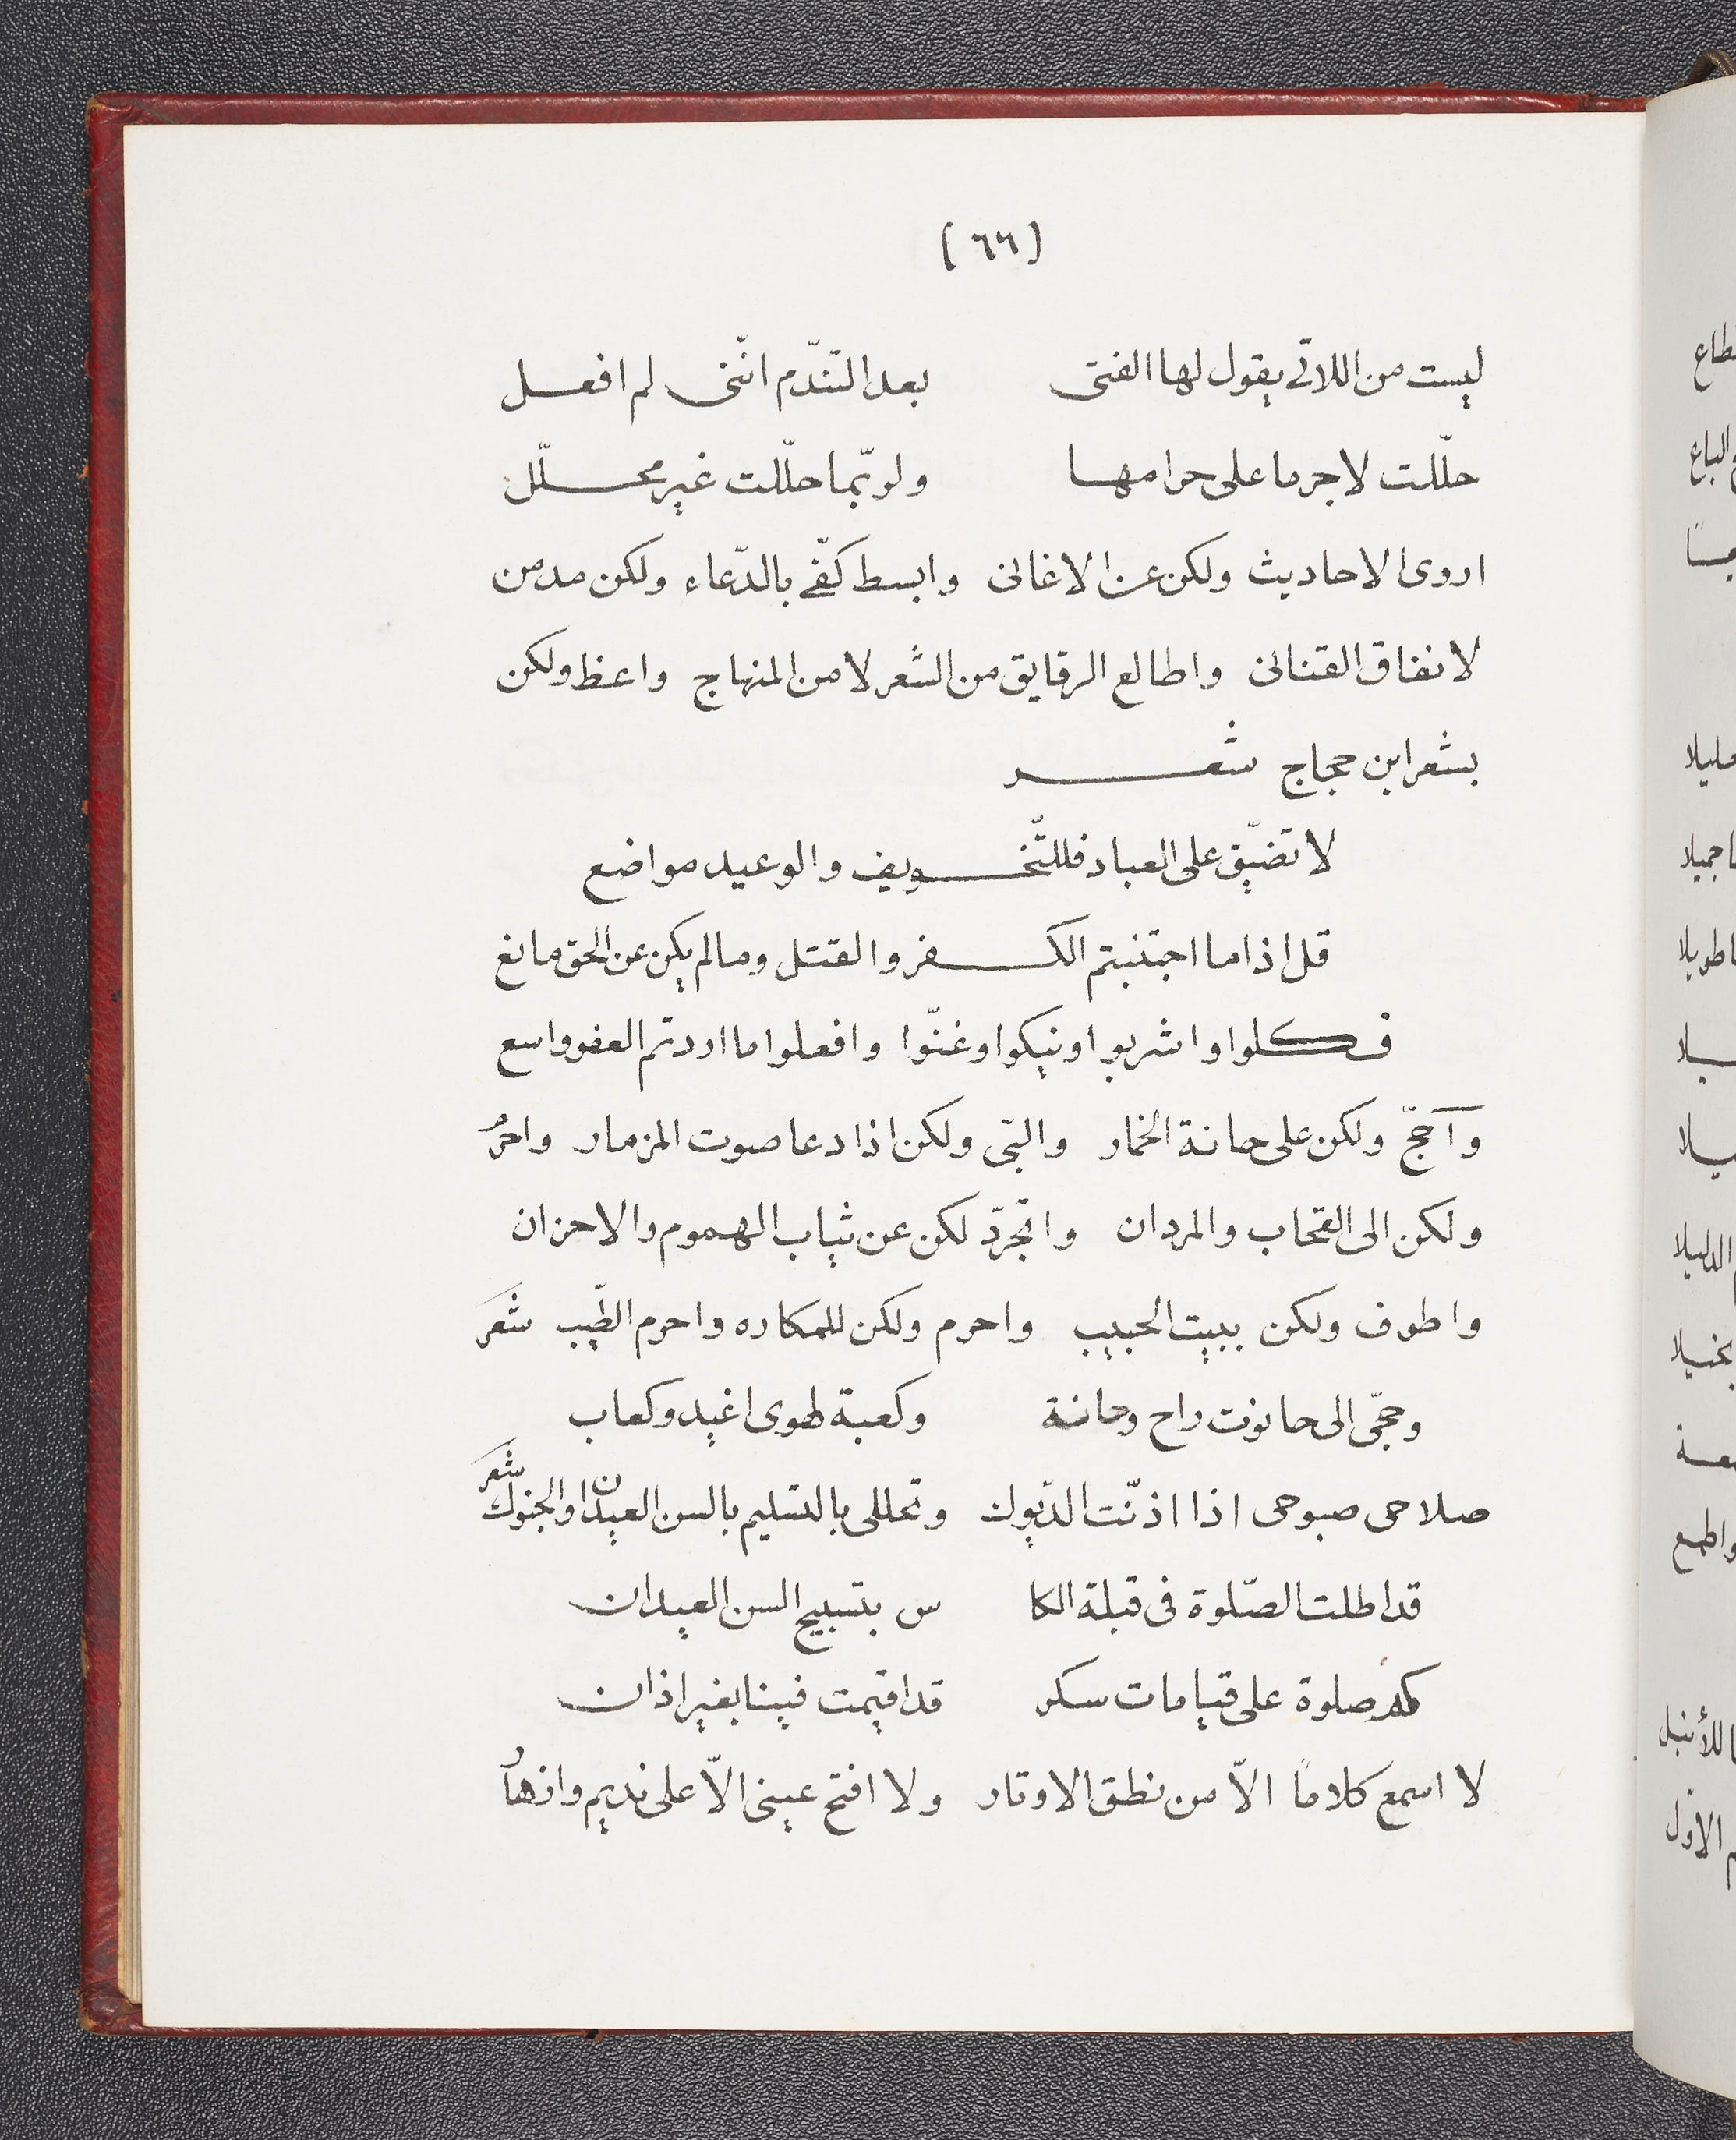 (٦٦)
ليست من اللاتى يقول لها الفتى بعد التّندّم انّنى لم افعل
حلّلت لاجرما على حرامها ولربّما حلّلت غير محلّل
اروى الاحاديث ولكن عن الاغانى وابسط كفّى بالدّعاء ولكن مدمن
لانفاق القنانى واطالع الرقايق من الشعر لا من المنهاج واعظ ولكن
بشعر ابن حجاج شعر
لا تضيّق على العباد فللتّخويف والوعيد مواضع
قل اذا ما اجتنبتم الكفر والقتل وما لم يكن عن الحق مانع
فكلوا واشربوا ونيكوا وغنّوا وافعلوا ما اردتم العفو واسع
وآحجّ ولكن على حانة الخمار والبّى ولكن اذا دعا صوت المزمار واحرم
ولكن الى القحاب والمردان واتجرّد لكن عن ثياب الهموم والاحزان
واطوف ولكن ببيت الحبيب واحرم ولكن للمكاره واحرم الطّيب شعر
وحجّى الى حانوت راح وحانة وكعبة لهوى اغيد وكعاب
صلاحى صبوحى اذا اذنّت الدّيوك وتحللى بالتسليم بالسن العيدان والجنوك شعر
قد اطلت الصّلوة فى قبلة الكا س بتسبيح السن العيدان
كم صلوة على قيامات سكر قد اقيمت فينا بغير اذان
لا اسمع كلاماً الاّ من نطق الاوتار ولا افتح عينى الاّ على نديم وازهار